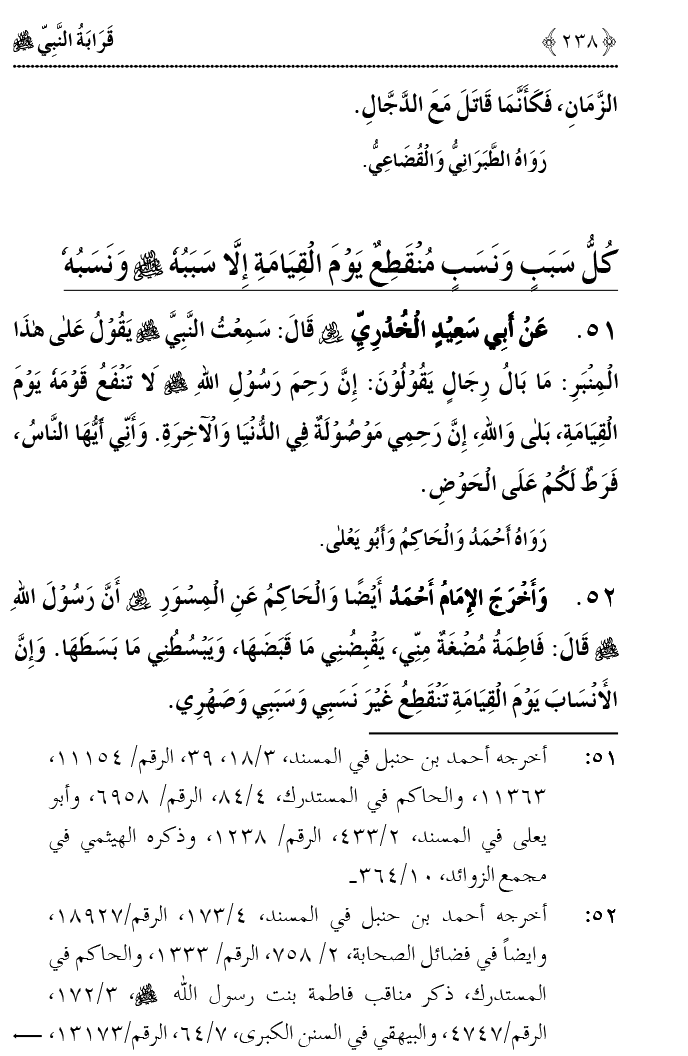 ﴿٢٣٨﴾ قَرَابَةُ النَّبِيِّ ﷺ
الزَّمَانِ، فَكَأَنَّمَا قَاتَلَ مَعَ الدَّجَّالِ.
رَوَاهُ الطَّبَرَانِيُّ وَالْقُضَاعِيُّ.
كُلُّ سَبَبٍ وَنَسَبٍ مُنْقَطِعٌ يَوْمَ الْقِيَامَةِ إِلَّا سَبَبُهُ ﷺ وَنَسَبُهُ
٥١. عَنْ أَبِي سَعِيْدٍ الْخُدْرِيِّ ؓ قَالَ: سَمِعْتُ النَّبِيَّ ﷺ يَقُوْلُ عَلٰى هٰذَا
الْمِنْبَرِ: مَا بَالُ رِجَالٍ يَقُوْلُوْنَ: إِنَّ رَحِمَ رَسُوْلِ اللهِ ﷺ لَا تَنْفَعُ قَوْمَهُ يَوْمَ
الْقِيَامَةِ، بَلٰى وَاللهِ، إِنَّ رَحِمِي مَوْصُوْلَةٌ فِي الدُّنْيَا وَالْآخِرَةِ. وَأَنِّي أَيُّهَا النَّاسُ،
فَرَطٌ لَكُمْ عَلَى الْحَوْضِ.
رَوَاهُ أَحْمَدُ وَالْحَاكِمُ وَأَبُو يَعْلٰى.
٥٢. وَأَخْرَجَ الإِمَامُ أَحْمَدُ أَيْضًا وَالْحَاكِمُ عَنِ الْمِسْوَرِ ؓ أَنَّ رَسُوْلَ اللهِ
ﷺ قَالَ: فَاطِمَةُ مُضْغَةٌ مِنِّي، يَقْبِضُنِي مَا قَبَضَهَا، وَيَبْسُطُنِي مَا بَسَطَهَا. وَإِنَّ
الْأَنْسَابَ يَوْمَ الْقِيَامَةِ تَنْقَطِعُ غَيْرَ نَسَبِي وَسَبَبِي وَصَهْرِي.
٥١: أخرجه أحمد بن حنبل في المسند، ١٨/٣، ٣٩، الرقم/ ١١١٥٤،
١١٣٦٣، والحاكم في المستدرك، ٨٤/٤، الرقم/ ٦٩٥٨، وأبو
يعلى في المسند، ٤٣٣/٢، الرقم/ ١٢٣٨، وذكره الهيثمي في
مجمع الزوائد، ٣٦٤/١٠ـ
٥٢: أخرجه أحمد بن حنبل في المسند، ١٧٣/٤، الرقم/١٨٩٢٧،
وايضاً في فضائل الصحابة، ٢/ ٧٥٨، الرقم/ ١٣٣٣، والحاكم في
المستدرك، ذكر مناقب فاطمة بنت رسول الله ﷺ، ١٧٢/٣،
الرقم/٤٧٤٧، والبيهقي في السنن الكبرى، ٦٤/٧، الرقم/١٣١٧٣، ←